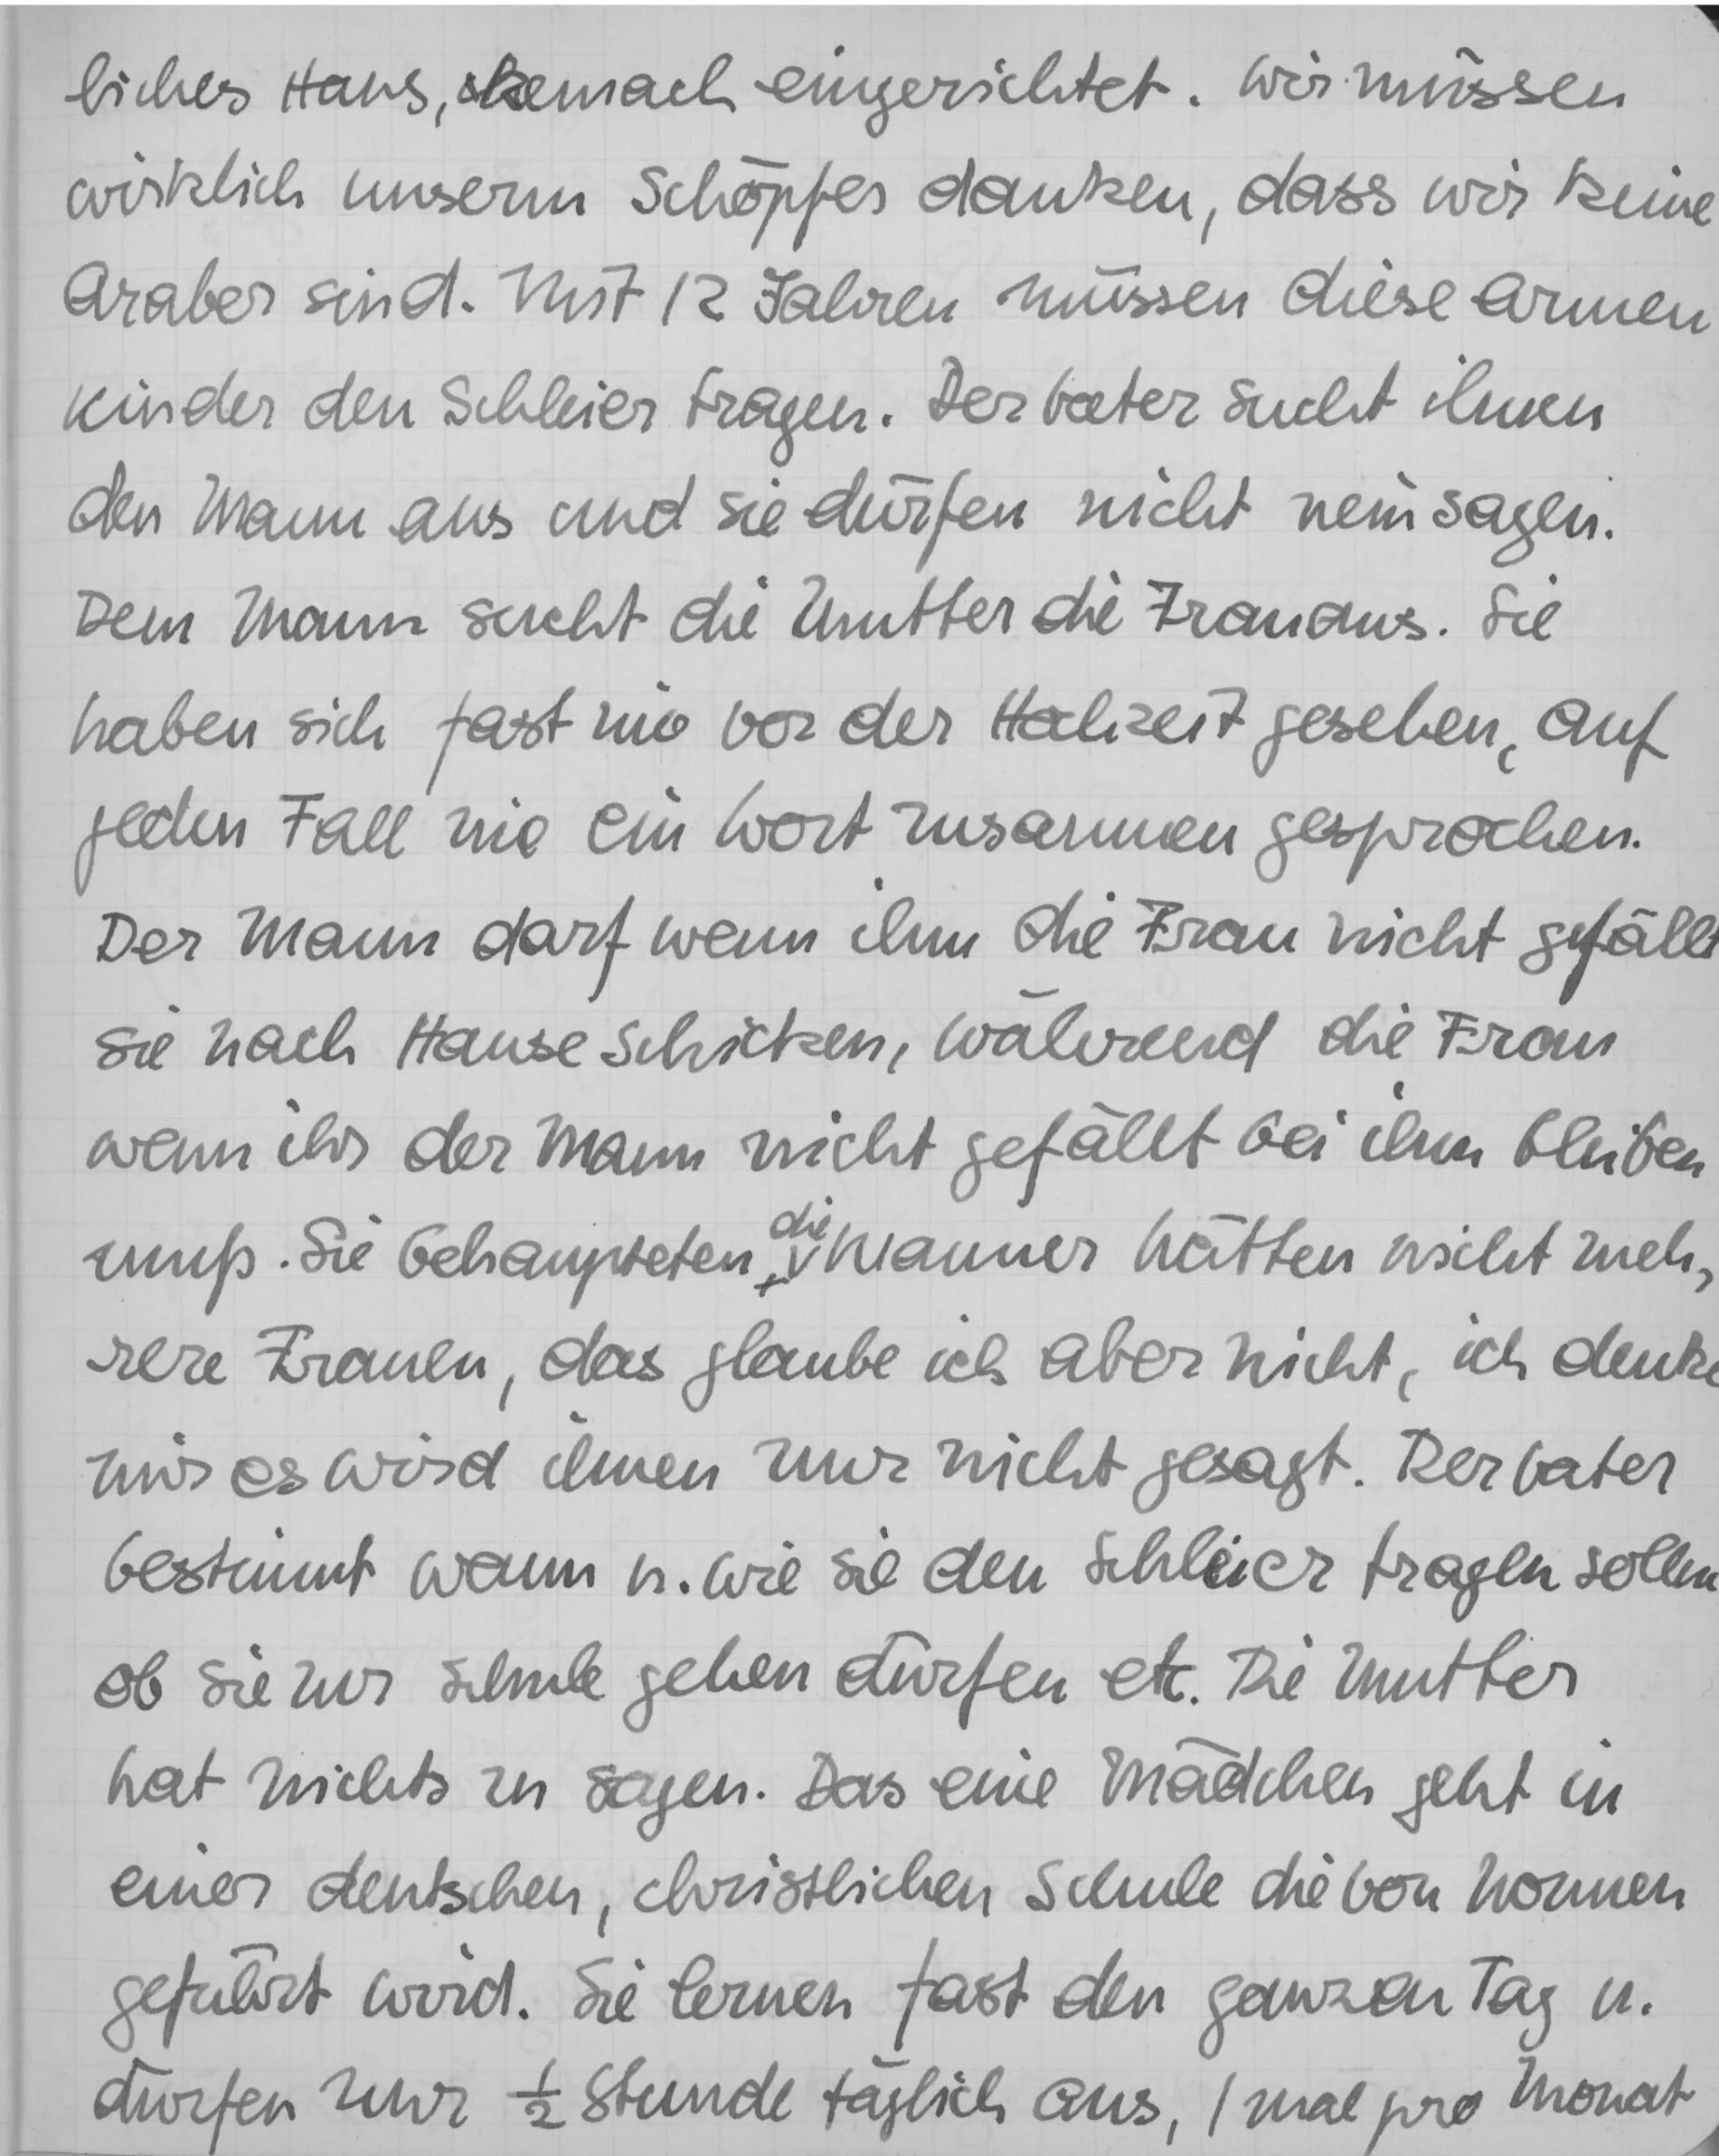 liches Haus, demach eingerichtet. Wir müssen
wirklich unserm Schöpfer danken, dass wir keine
Araber sind. Mit 12 Jahren müssen diese armen
Kinder den Schleier tragen. Der Vater sucht ihnen
den Mann aus und sie dürfen nicht nein sagen.
Dem Mann sucht die Mutter die Frau aus. Sie
haben sich fast nie vor der Hochzeit gesehen, auf
jeden Fall nie ein Wort zusammen gesprochen.
Der Mann darf wenn ihm die Frau nicht gefällt
sie nach Hause schicken, während die Frau
wenn ihr der Mann nicht gefällt bei ihm bleiben
muß. Sie behaupteten, die Männer hätten nicht meh,
rere Frauen, das glaube ich aber nicht, ich denke
mir es wird ihnen nur nicht gesagt. Der Vater
bestimmt wann u. wie sie den Schleier tragen sollen
ob sie zur Schule gehen dürfen etc. Die Mutter
hat nichts zu sagen. Das eine Mädchen geht in
einer deutschen, christlichen Schule die von Nonnen
geführt wird. Sie lernen fast den ganzen Tag u.
dürfen nur ½ Stunde täglich aus, 1 mal pro Monat